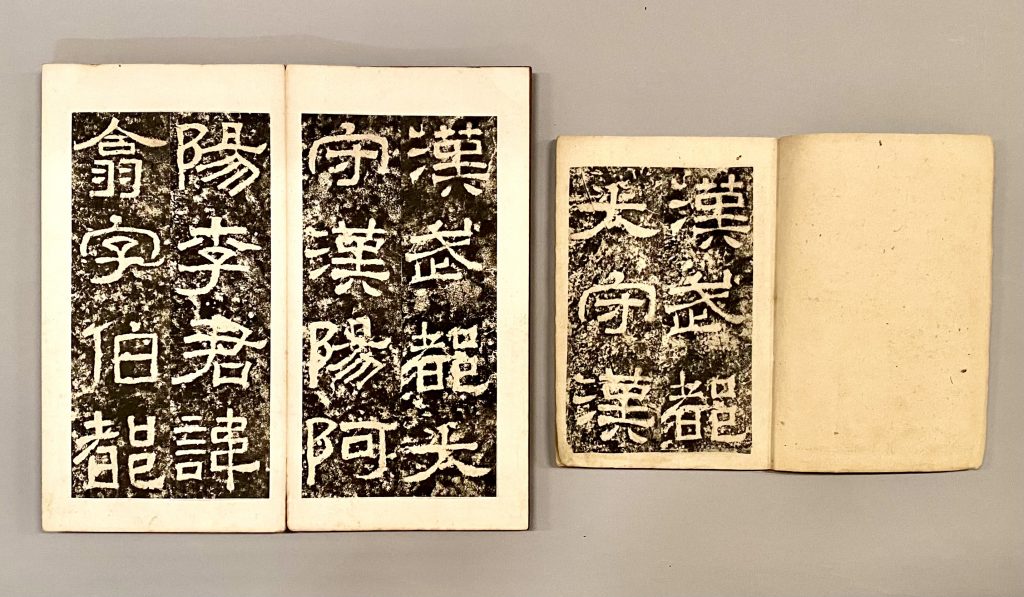 漢武都太
守漢陽阿
陽李君諱
翕字伯都
漢武都
太守漢